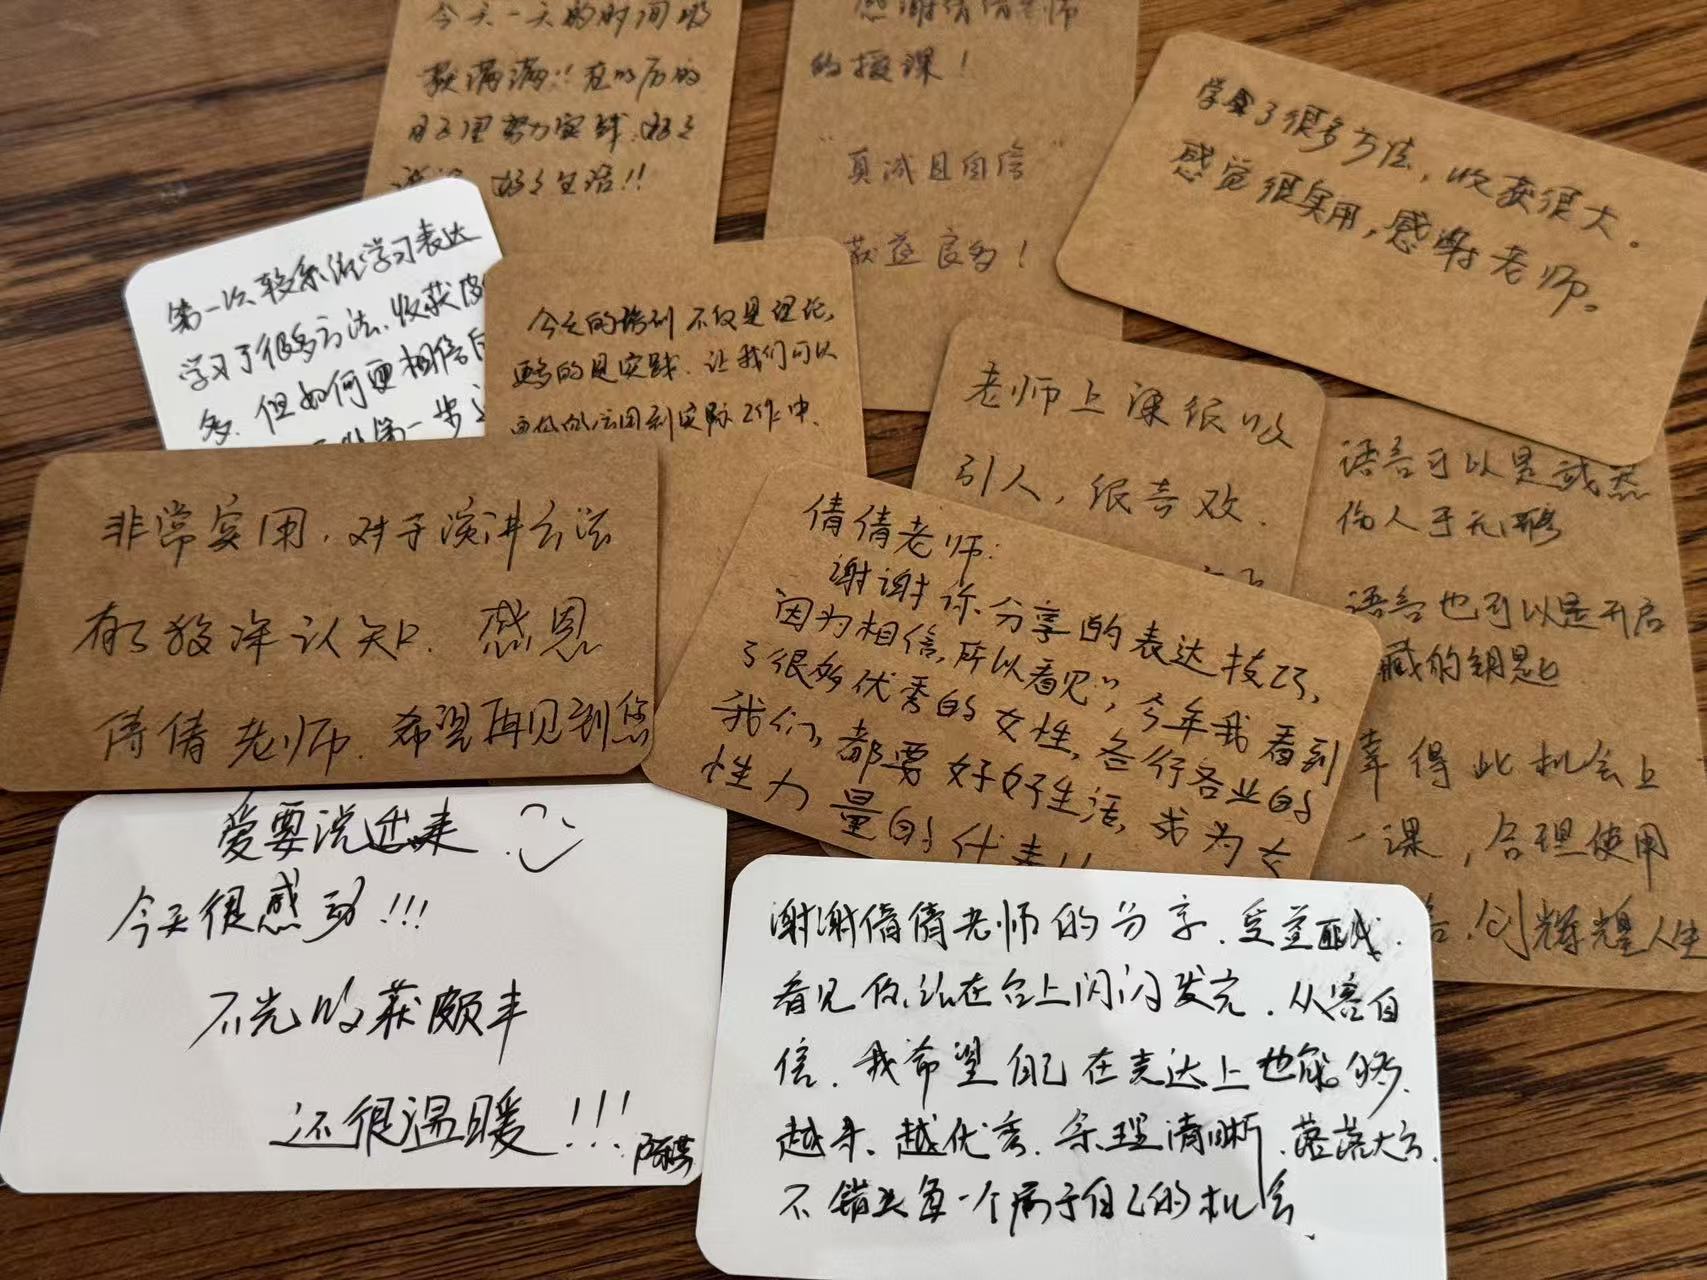 今天一天的时间收
获满满!!在以后的
日子里努力实践,好好
好好生活!!
感谢倩倩老师
的授课!
"真诚且自信"
获益良多!
学会了很多方法,收获很大。
感觉很实用,感谢老师。
第一次较系统学习表达
学习了很多方法、收获
多.但如何更相信自
第一步
今天的培训不仅是理论,
更多的是实践.让我们可以
更好的运用到实际工作中.
老师上课很吸
引人,很喜欢.
语言可以是武器
伤人于无形
语言也可以是开启
藏的钥匙.
幸得此机会上
一课,合理使用
言,创辉煌人生
非常实用.对于演讲方法
有了较深认知.感恩
倩倩老师.希望再见到您
倩倩老师:
谢谢你分享的表达技巧,
因为相信,所以看见",今年我看到
了很多优秀的女性,各行各业的
我们,都要好好生活,成为女
性力量的代表!!
爱要说出来.
今天很感动!!!
不光收获颇丰
还很温暖!!!
谢谢倩倩老师的分享.受益匪浅.
看见你站在台上闪闪发亮.从容自
信.我希望自己在表达上也能够.
越来.越优秀.条理清晰.落落大方.
不错失每一个属于自己的机会.